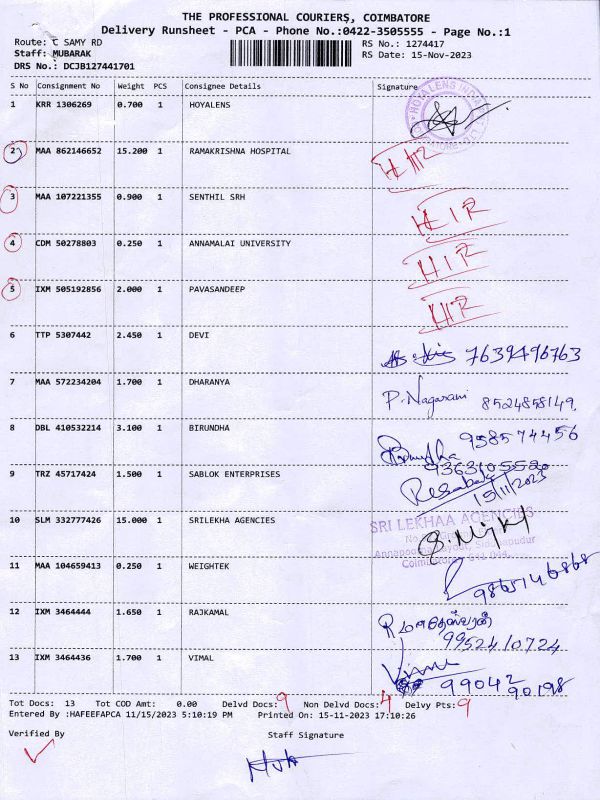 THE PROFESSIONAL COURIERS, COIMBATORE
Delivery Runsheet - PCA - Phone No.:0422-3505555 - Page No.:1
Route: C SAMY RD
Staff: MUBARAK
DRS No.: DCJB127441701
RS No.: 1274417
RS Date: 15-Nov-2023
S No Consignment No Weight PCS Consignee Details Signature
1 KRR 1306269 0.700 1 HOYALENS
2 MAA 862146652 15.200 1 RAMAKRISHNA HOSPITAL HIR
3 MAA 107221355 0.900 1 SENTHIL SRH HIR
4 CDM 50278803 0.250 1 ANNAMALAI UNIVERSITY HIR
5 IXM 505192856 2.000 1 PAVASANDEEP HIR
6 TTP 5307442 2.450 1 DEVI 7639496763
7 MAA 572234204 1.700 1 DHARANYA P. Nagarani 8524858149
8 DBL 410532214 3.100 1 BIRUNDHA Birundha 958574456
9 TRZ 45717424 1.500 1 SABLOK ENTERPRISES 9363105520
15/11/2023
10 SLM 332777426 15.000 1 SRILEKHA AGENCIES SRI LEKHAA AGENCIES
11 MAA 104659413 0.250 1 WEIGHTEK 9865146868
12 IXM 3464444 1.650 1 RAJKAMAL
9952410724
13 IXM 3464436 1.700 1 VIMAL Vimal
99042
90198
Tot Docs: 13 Tot COD Amt: 0.00 Delvd Docs: 9 Non Delvd Docs: 4 Delvy Pts: 9
Entered By :HAFEEFAPCA 11/15/2023 5:10:19 PM Printed On: 15-11-2023 17:10:26
Verified By Staff Signature